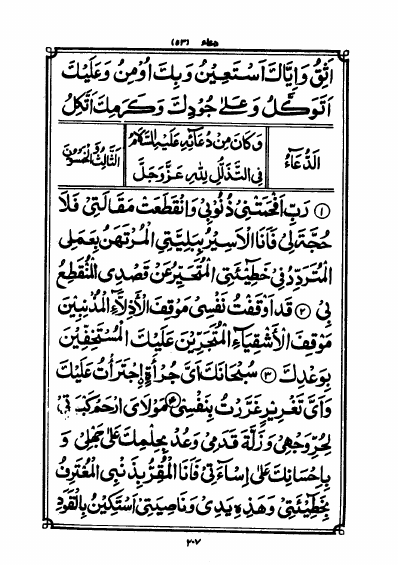 دعاء (۵۳)
اَثِقُ وَاِيَّاكَ اَسْتَعِيْنُ وَبِكَ اُوْمِنُ وَعَلَيْكَ
اَتَوَكَّلُ وَعَلٰى جُوْدِكَ وَكَرَمِكَ اَتَّكِلُ
اَلدُّعَاءُ
وَكَانَ مِنْ دُعَائِهٖ عَلَيْهِ السَّلَامُ
فِى التَّذَلُّلِ لِلّٰهِ عَزَّوَجَلَّ
الثَّالِثُ وَالْخَمْسُوْنَ
۱ رَبِّ اَفْحَمَتْنِىْ ذُنُوْبِىْ وَانْقَطَعَتْ مَقَالَتِىْ فَلَا
حُجَّةَ لِىْ فَاَنَا الْاَسِيْرُ بِبَلِيَّتِى الْمُرْتَهَنُ بِعَمَلِى
الْمُتَرَدِّدُ فِىْ خَطِيْئَتِى الْمُتَحَيِّرُ عَنْ قَصْدِى الْمُنْقَطَعُ
بِىْ ۲ قَدْ اَوْقَفْتُ نَفْسِىْ مَوْقِفَ الْاَذِلَّاءِ الْمُذْنِبِيْنَ
مَوْقِفَ الْاَشْقِيَاءِ الْمُتَجَرِّيْنَ عَلَيْكَ الْمُسْتَخِفِّيْنَ
بِوَعْدِكَ ۳ سُبْحَانَكَ اَىَّ جُرْاَةٍ اِجْتَرَأْتُ عَلَيْكَ
وَاَىَّ تَغْرِيْرٍ غَرَّرْتُ بِنَفْسِىْ ۴ مَوْلَاىَ ارْحَمْ كَبْوَتِىْ
لِحُرِّ وَجْهِىْ وَزَلَّةَ قَدَمِىْ وَعُدْ بِحِلْمِكَ عَلٰى جَهْلِىْ وَ
بِاِحْسَانِكَ عَلٰى اِسَاءَتِىْ فَاَنَا الْمُقِرُّ بِذَنْبِى الْمُعْتَرِفُ
بِخَطِيْئَتِىْ وَهٰذِهٖ يَدِىْ وَنَاصِيَتِىْ اَسْتَكِيْنُ بِالْقَوَدِ
۲۰۷